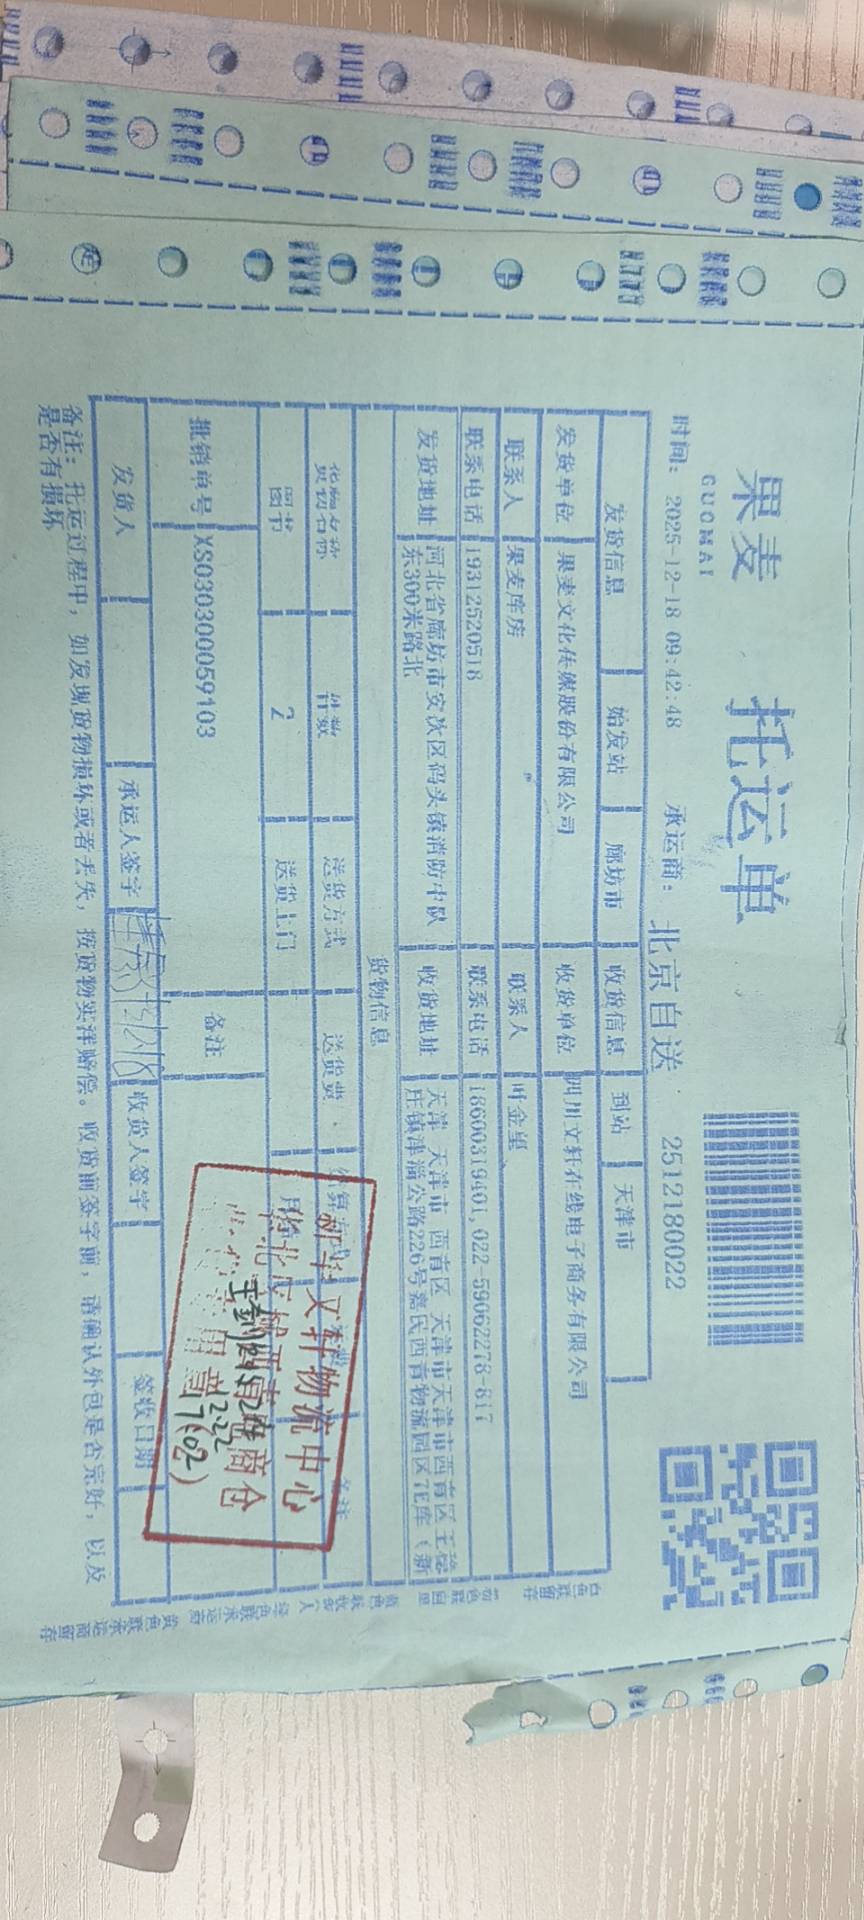 果麦 托运单
GUOMAI
时间：2025-12-18 09:42:48 承运商：北京自送 2512180022
发货信息 始发站 廊坊市 收货信息 到站 天津市
发货单位 果麦文化传媒股份有限公司 收货单位 四川文轩在线电子商务有限公司
联系人 果麦库房 联系人 叶金星
联系电话 19312520518 联系电话 18600319401,022-59062278-817
发货地址 河北省廊坊市安次区码头镇消防中队东300米路北 收货地址 天津 天津市 西青区 天津市天津市西青区王稳庄镇津淄公路226号嘉民西青物流园区7E库（新
货物信息
货物名称 件数 送货方式 送货费 备注
图书 2 送货上门
批销单号 XS030300059103 备注
发货人 承运人签字 收货人签字 签收日期
备注：托运过程中，如发现货物损坏或者丢失，按货物实洋赔偿。收货前签字前，请确认外包是否完好，以及
是否有损坏
新华文轩物流中心
华北 电商仓
17:02
白色联留存